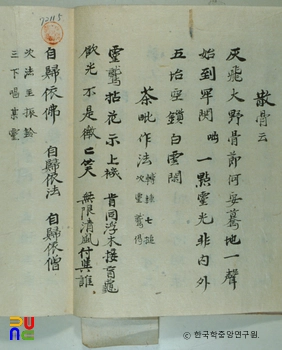 散骨云
灰飛大野骨節何安驀地一聲
始到牢關 咄 一點靈光非內外
五治空鎖白雲間
茶毗作法
靈鷲拈花示上機 肯同浮木接盲龜
飮光不是微〻笑 無限清風付與誰
自歸依佛 自歸依法 自歸依僧
次法主振鈴
三下唱
ⓒ 한국학중앙연구원